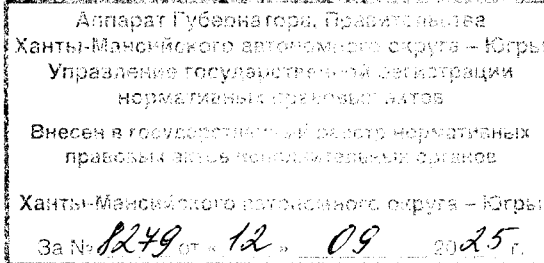 Аппарат Губернатора, Правительства
Ханты-Мансийского автономного округа – Югры
Управление государственной регистрации
нормативных правовых актов
Внесен в государственный реестр нормативных
правовых актов исполнительных органов
Ханты-Мансийского автономного округа – Югры
За № 8279 от « 12 » 09 2025 г.